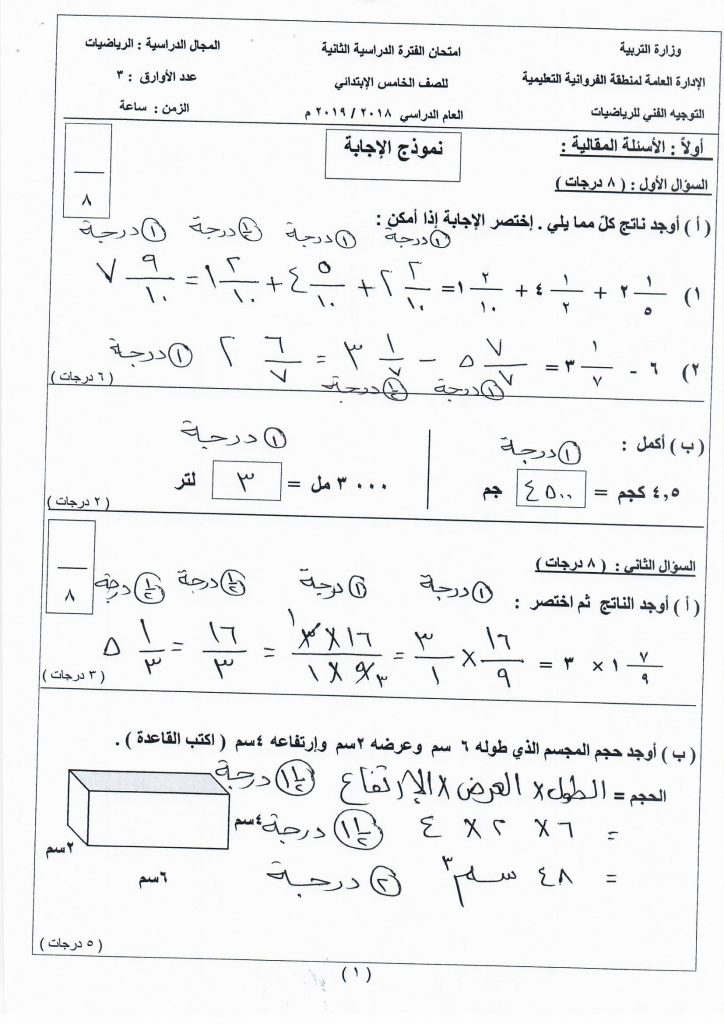 وزارة التربية
الإدارة العامة لمنطقة الفروانية التعليمية
التوجيه الفني للرياضيات
امتحان الفترة الدراسية الثانية
للصف الخامس الإبتدائي
العام الدراسي ٢٠١٨ / ٢٠١٩ م
المجال الدراسية : الرياضيات
عدد الأوارق : ٣
الزمن : ساعة
أولاً : الأسئلة المقالية :
نموذج الإجابة
السؤال الأول : ( ٨ درجات )
٨
( أ ) أوجد ناتج كلّ مما يلي . إختصر الإجابة إذا أمكن :
١ درجة ١ درجة ١/٢ درجة ١ درجة
١) ٢ ١/٥ + ٤ ١/٢ + ١ ٢/١٠ = ٢ ٢/١٠ + ٤ ٥/١٠ + ١ ٢/١٠ = ٧ ٩/١٠
٢) ٦ - ٣ ١/٧ = ٥ ٧/٧ - ٣ ١/٧ = ٢ ٦/٧ ١ درجة
١ درجة ١/٢ درجة
( ٦ درجات )
( ب ) أكمل :
١ درجة
٤,٥ كجم = ٤٥٠٠ جم
١ درجة
٣٠٠٠ مل = ٣ لتر
( ٢ درجات )
السؤال الثاني : ( ٨ درجات )
٨
١ درجة ١ درجة ١/٢ درجة ١/٢ درجة
( أ ) أوجد الناتج ثم اختصر :
١ ٧/٩ × ٣ = ١٦/٩ × ٣/١ = ١٦ × ٣ ١/٩ ٣ × ١ = ١٦/٣ = ٥ ١/٣
( ٣ درجات )
( ب ) أوجد حجم المجسم الذي طوله ٦ سم وعرضه ٢سم وإرتفاعه ٤سم ( اكتب القاعدة ) .
الحجم = الطول × العرض × الإرتفاع ١ ١/٢ درجة
= ٦ × ٢ × ٤ ١ ١/٢ درجة
= ٤٨ سم٣ ٢ درجة
٤سم
٢سم
٦سم
( ٥ درجات )
( ١ )